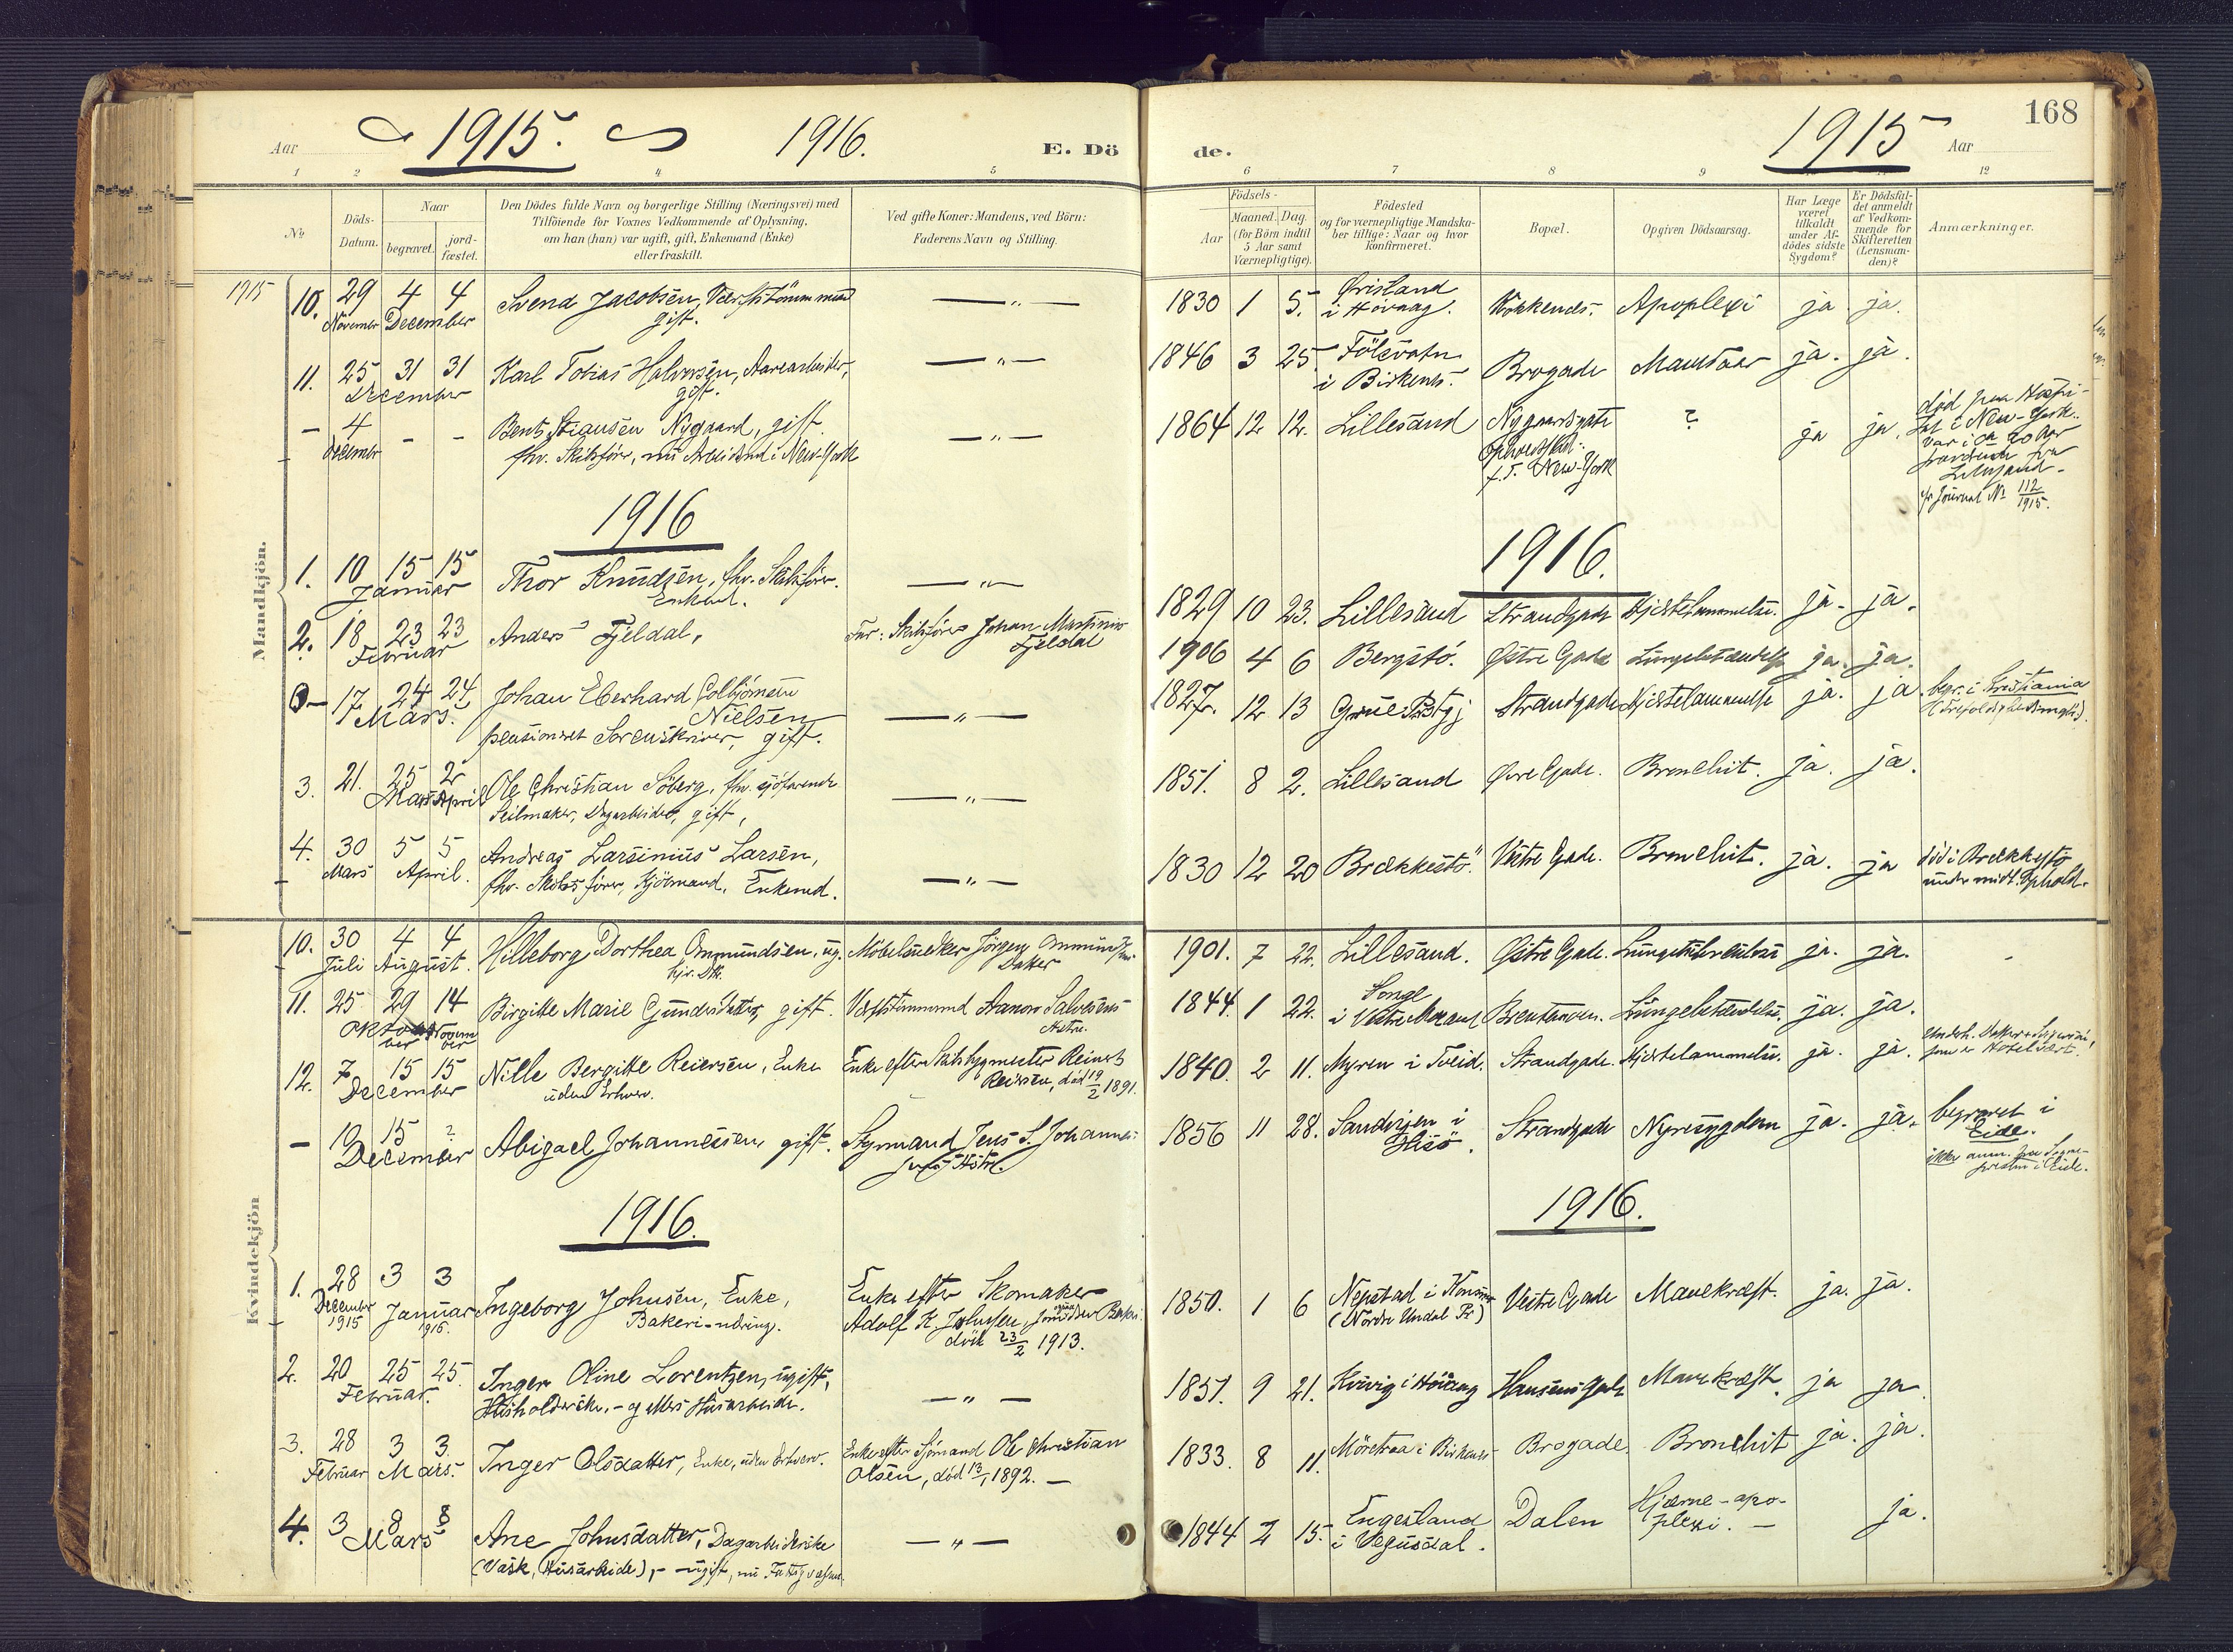 168
Aar 1915. 1916. E. Dö
de. 1915 Aar
1 2 4 5
6 7 8 9 12
No
Döds-
Datum.
Naar
begravet.
jord-
fæstet.
Den Dödes fulde Navn og borgerlige Stilling (Næringsvei) med
Tilföiende for Voxnes Vedkommende af Oplysning,
om han (hun) var ugift, gift, Enkemand (Enke)
eller fraskilt.
Ved gifte Koner: Mandens, ved Börn:
Faderens Navn og Stilling.
Födsels-
Aar
Maaned. Dag.
(for Börn indtil
5 Aar samt
Værnepligtige).
Födested
og for værnepligtige Mandska-
ber tillige: Naar og hvor
konfirmeret.
Bopæl.
Opgiven Dödsaarsag.
Har Læge
været
tilkaldt
under Af-
dödes sidste
Sygdom?
Er Dödsfal-
det anmeldt
af Vedkom-
mende for
Skifteretten
(Lensman-
den)?
Anmærkninger.
Mandkjön.
1915 10. 29 4 4 Svend Jacobsen, — " — 1830 1 5. Apoplexi ja ja.
November December gift. i Høvaag.
11. 25 31 31 Karl Tobias Halvorsen, — " — 1846 3 25 Brogade ja. ja.
December gift. i Birkenes.
— 4 - - Nygaard, gift — " — 1864 12 12. Lillesand ? ja ja.
December fhv. Skibsfører, nu i New-York
f.T. New-York
død paa Hospi-
tal i New-York.
var i ca 20 Aar
Lillesand.
Journal No 112/1915.
1916
1916.
1. 10 15 15 Thor Knudsen, fhv. Skibsfører. — " — 1829 10 23. Lillesand Strandgade Hjertelammelse. ja. ja.
Januar Enkemd.
2. 18 23 23 Anders Fjeldal, Far: Skibsfører Johan 1906 4 6 Bergstø. Østre Gade Lungebetændelse ja. ja.
Februar Fjeldal
— 17 24 24 Johan Eberhard — " — 1827. 12 13 Grue Strandgade Hjertelammelse ja. ja begr. i Kristiania
Mars. Nielsen
pensioneret Sorenskriver, gift.
3. 21. 25 2 Ole Christian Söberg, fhv. sjöfarende — " — 1851. 8 2. Lillesand Øvre Gade. Bronchit. ja. ja.
Mars April Seilmaker, Dagarbeider, gift,
4. 30 5 5 Andreas Larsinius Larsen, — " — 1830 12 20 Brækkestö. Vestre Gade. Bronchit. ja. ja död i Brækkestö
Mars April. fhv. Skibsfører, Enkemd. under midl. Ophold.
Kvindekjön
10. 30 4 4 Hilleborg Dorthea Ommundsen, ug. Möbelsnedker Jörgen Ommundsen 1901. 7 22. Lillesand. Østre Gade. Lungetuberculose ja. ja.
Juli August. hjv. Dtr.
11. 25 29 14 Birgitte Marie Gundersdatter, gift. Aanon Salvesens 1844. 1 22. Songe Lungebetændelse. ja. ja.
Oktober November i Vestre Moland
12. 7 15 15 Nille Bergitte Reiersen, Enke Enke efter Reinert 1840. 2 11. Myren i Tveid. Strandgade. Hjertelammelse. ja. ja.
December uden Erhverv. Reiersen, död 19/2 1891.
— 10 15 ? Abigael Johannessen, gift. Styrmand Jens S. Johannes- 1856 11 28. i Strandgade Nyresygdom ja. ja. begravet i
December Hisö. Eide.
ikke anm. fra Sogne-
presten i Eide.
1916.
1916.
1. 28 3 3 Ingeborg Johnsen, Enke, Enke efter Skomaker 1850. 1 6 Vestre Gade Mavekræft. ja. ja.
December 1915 Januar 1916. Bakeri-næring. Adolf K. Johnsen,
död 23/2 1913. (Nordre Undal Pr)
2. 20 25 25 Inger Oline Lorentzen, ugift, — " — 1857. 9 21. Mavekræft. ja ja
Februar. Husholderske, - og Husarbeide.
3. 28 3 3 Inger Olsdatter, Enke, uden Erhverv. Enke efter Sjömand Ole Christian 1833. 8 11. i Birkenes Brogade. Bronchit ja. ja.
Februar Mars. Olsen, död 13/1 1892. —
4. 3 8 8 Ane Johnsdatter, Dagarbeiderske — " — 1844 2 15. Engesland Dalen Hjærne-apo- ja.
Mars (Vask, Husarbeide), - ugift, i Vegusdal. plexi. —